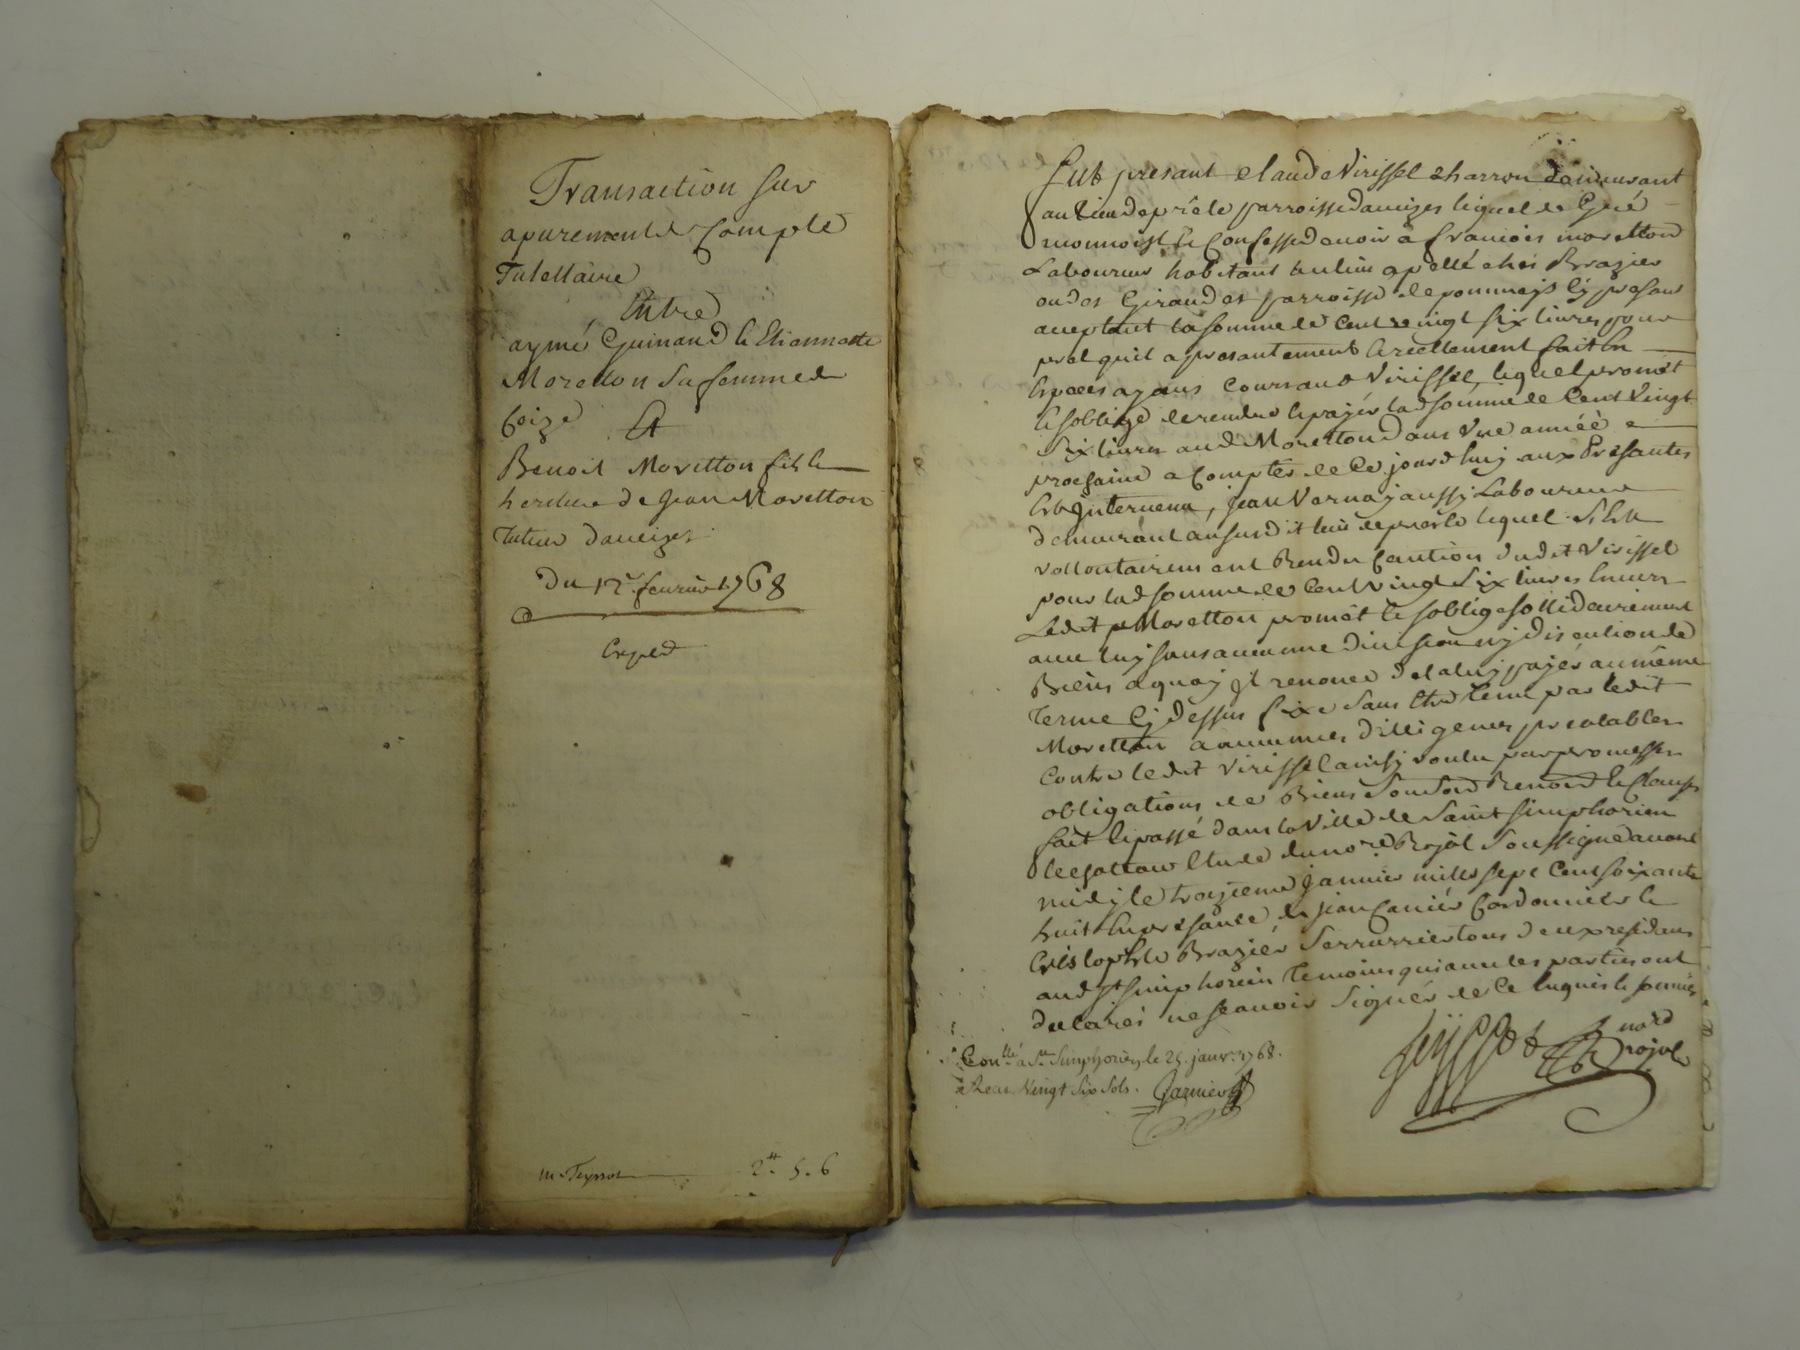 Transaction sur
apurement de Compte
Tutellaire
Entre
aymé Guinand & Etiennette
Moretton sa femme de
Coize Et
Benoit Moretton fils &
heritier de Jean Moretton
Tuteur daveizes
Du 12e fevrier 1768
Exped
m. Teyssot 2tt 5. 6
Fut presant Claude Virissel Charron demeurant
au lieu de prêle parroisse daveizes lequel de Gré
reconnoist & Confesse devoir à francois moretton
Laboureur habitant au lieu apellé chez Brazier
ou des Giraudes parroisse de pommeys Cy presant
acceptant la somme de Cent vingt six livres pour
pret quil a presantement & reellement fait En
Especes ayans Cours aud Virissel, lequel promet
& soblige de rendre & payér lad somme de Cent Vingt
Six livres aud Moretton dans Vne année
prochaine a Compter de Ce jourdhuy aux Presantes
Est Intervenu, Jean Vernay aussy Laboureur
demeurant au susdit lieu de presle lequel sEst
vollontairement Rendu Caution dudit Virissel
pour lad somme de Cent Vingt Six livres Envers
Ledit Moretton promet & soblige sollidairement
avec luy sans aucunne division ny discution de
Biens a quoy Il renonce de la luy payér au même
Terme Cy dessus fixé sans Etre tenu par ledit
Moretton a aucunnes dilligences prealables
Contre ledit Virissel ainsy voulu par promesses
obligations de Biens Renond & Clauses
fait & passé dans la Ville de Saint simphorien
le chateau Etude du nore Royal Soussigné avant
midy le treizieme Janvier mille sept Cent soixante
huit En presance de Jean Cordonnier &
Cristophle Brazier Serrurrier tous deux residans
aud st simphorien Temoins qui avec les parties ont
declarés ne scavoir Signér de Ce Enquis & sommés
Teyssot nore
royal
Conllé à St. Simphorien le 25. janv. 1768.
Recu Vingt Six Sols. Garnier